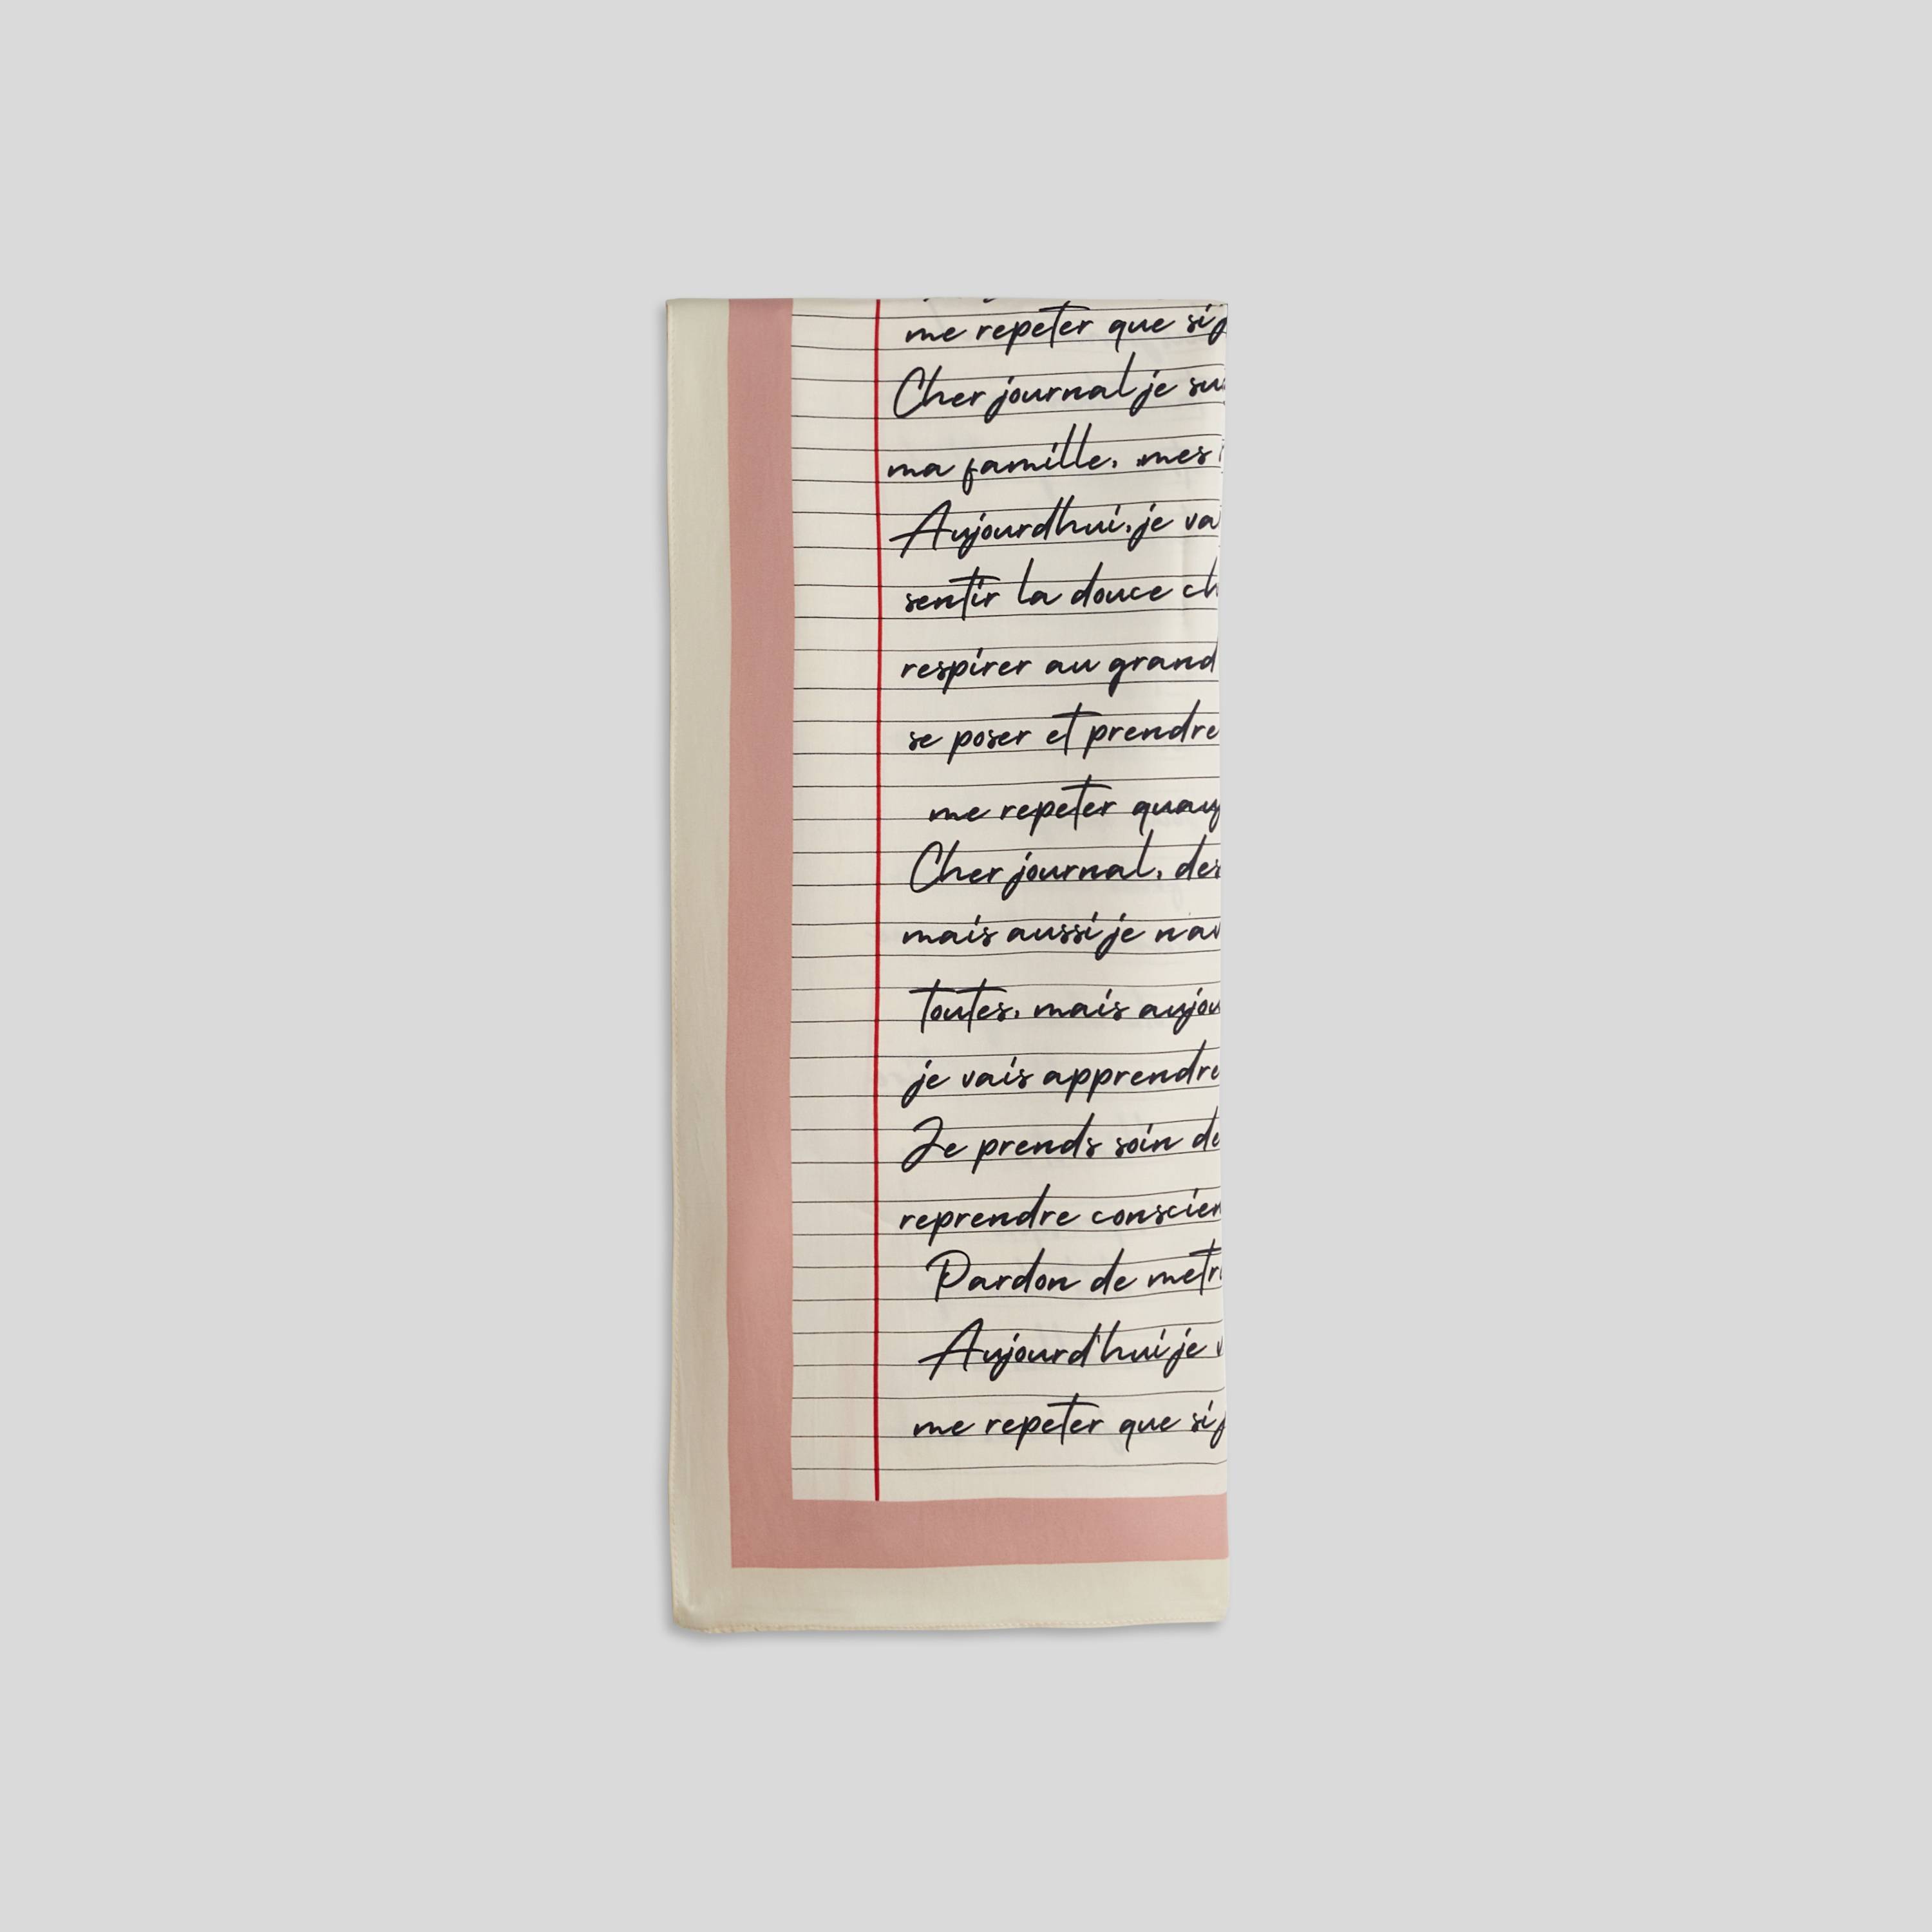 me repeter que si
Cher journal je su
ma famille, mes
Aujourdhui, je va
sentir la douce ch
respirer au grand
se poser et prendre
me repeter quau
Cher journal, des
mais aussi je n'av
toutes, mais aujou
je vais apprendre
Je prends soin de
reprendre conscien
Pardon de metr
Aujourd'hui je v
me repeter que si